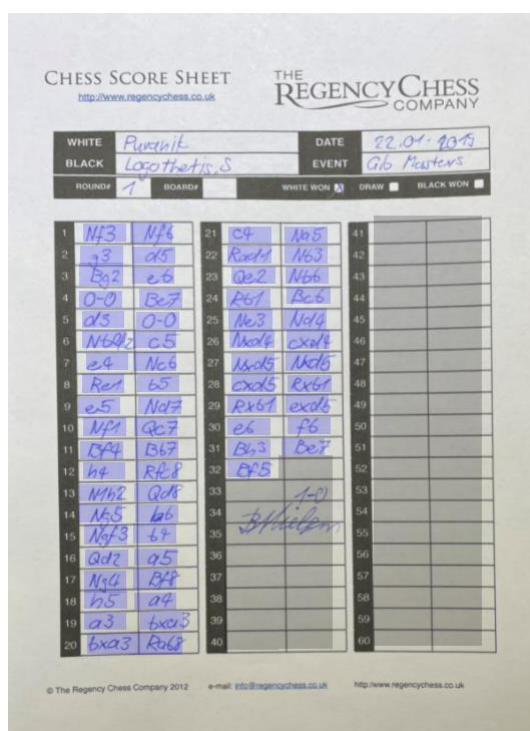 CHESS SCORE SHEET
http://www.regencychess.co.uk
THE
REGENCY CHESS
COMPANY
WHITE Puranik DATE 22.01-2019
BLACK Logothetis, S EVENT Gib Masters
ROUND# 1 BOARD# WHITE WON DRAW BLACK WON
1 Nf3 Nf6
2 g3 d5
3 Bg2 e6
4 0-0 Be7
5 d3 0-0
6 Nbd2 c5
7 e4 Nc6
8 Re1 b5
9 e5 Nd7
10 Nf1 Qc7
11 Bf4 Bb7
12 h4 Rfc8
13 N1h2 Qd8
14 Ng5 h6
15 Ngf3 b4
16 Qd2 a5
17 Ng4 Bf8
18 h5 a4
19 a3 bxa3
20 bxa3 Rab8
21 c4 Na5
22 Rad1 Nb3
23 Qe2 Nb6
24 Rb1 Bc6
25 Ne3 Nd4
26 Nxd4 cxd4
27 Nxd5 Nxd5
28 cxd5 Rxb1
29 Rxb1 exd5
30 e6 f6
31 Bh3 Be7
32 Bf5
33 1-0
34
35
36
37
38
39
40
41
42
43
44
45
46
47
48
49
50
51
52
53
54
55
56
57
58
59
60
© The Regency Chess Company 2012 e-mail: info@regencychess.co.uk http://www.regencychess.co.uk